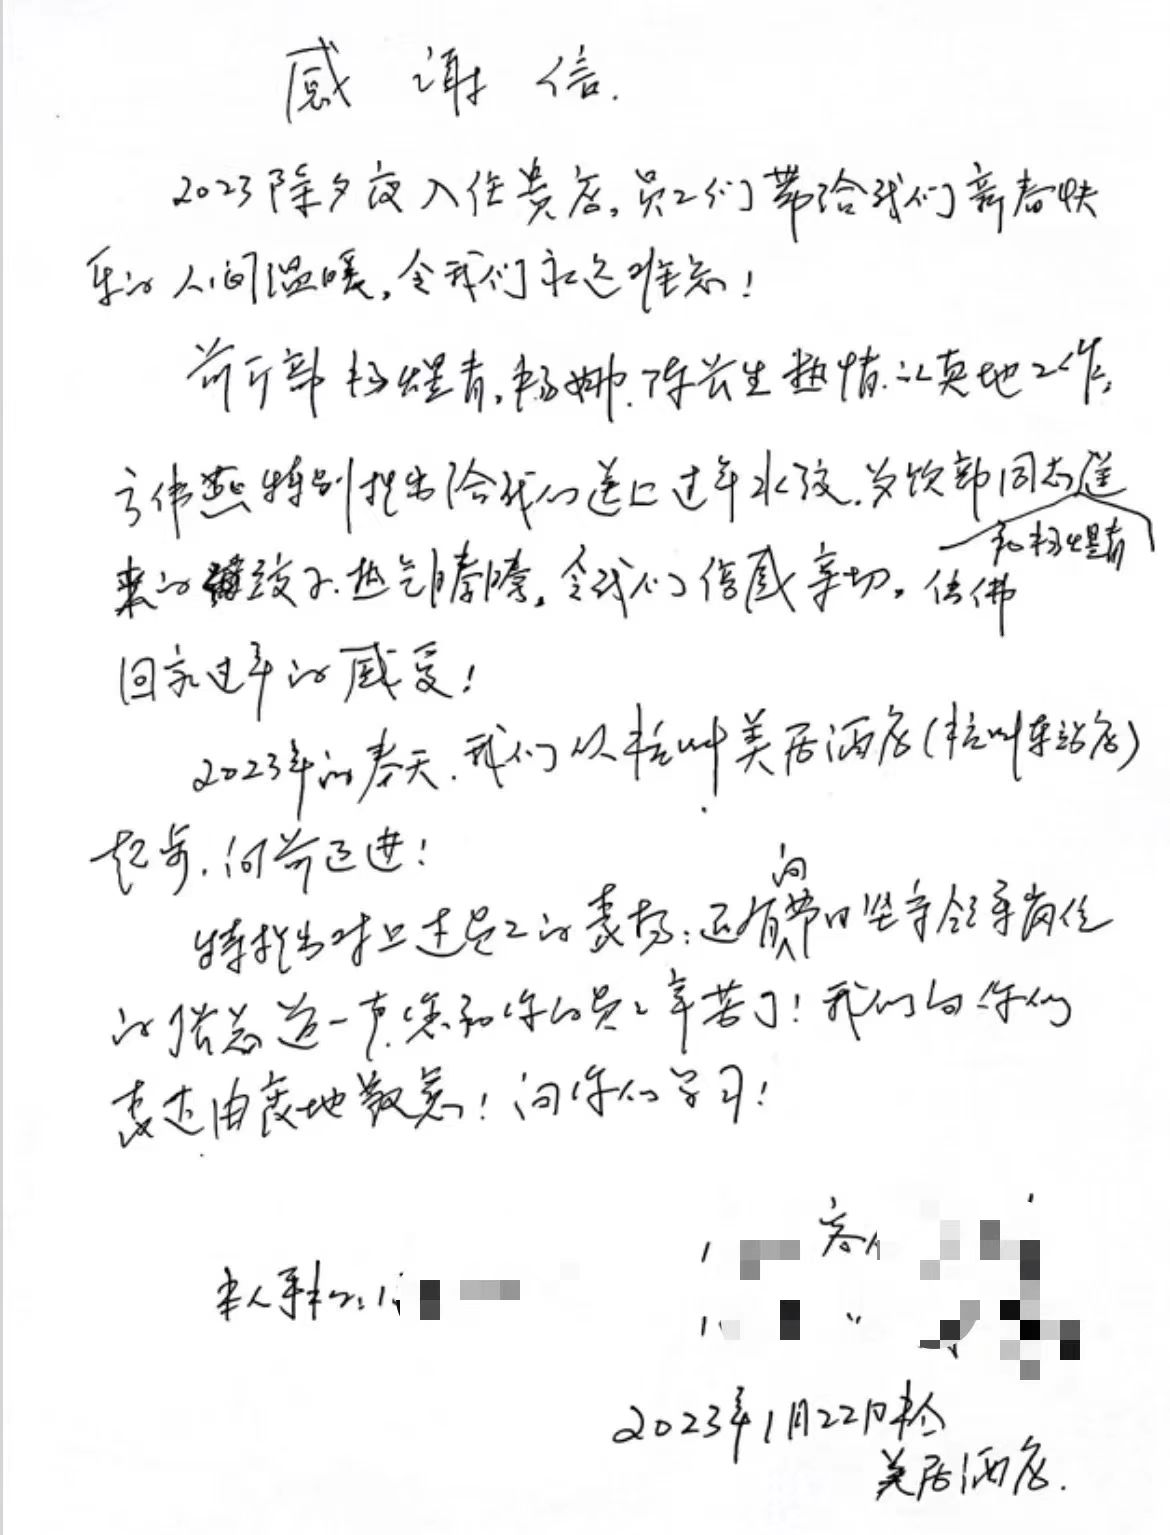 感谢信.
2023除夕夜入住贵店,员工们带给我们新春快
乐的人间温暖,令我们永远难忘!
前厅部杨煜青,杨娜、陈长生热情、认真地工作,
方伟燕特别提出给我们送上过年水饺,为饮部同志送
和杨煜青
来的饺子,热气腾腾,令我们倍感亲切,仿佛
回家过年的感受!
2023年的春天,我们从杭州美居酒店(杭州车站店)
起步,向前迈进!
特提出对上述员工的表扬;还有向节日坚守领导岗位
的 总道一声,您和你的员工辛苦了!我们向你们
表达由衷地敬意!向你们学习!
客人
本人手机:1
2023年1月22日于
美居酒店.